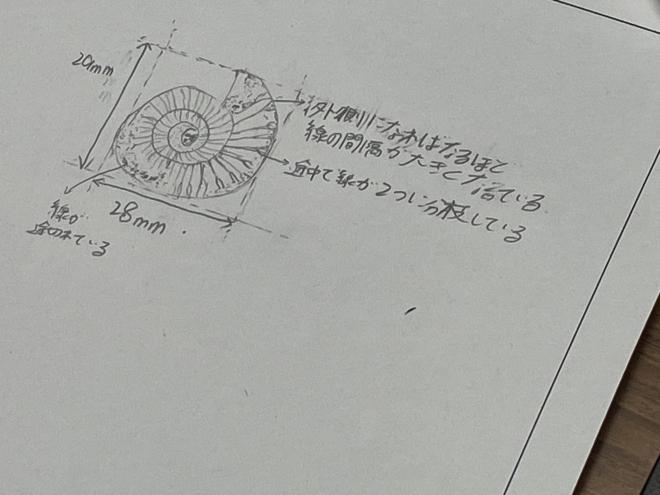 20mm
外側になればなるほど
線の間隔が大きくなっている
途中で線が2つに分枝している
28mm
線が
途切れている